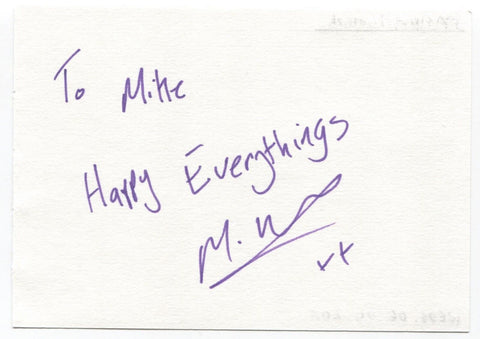 To Mike
Happy Everythings
M. W
xx